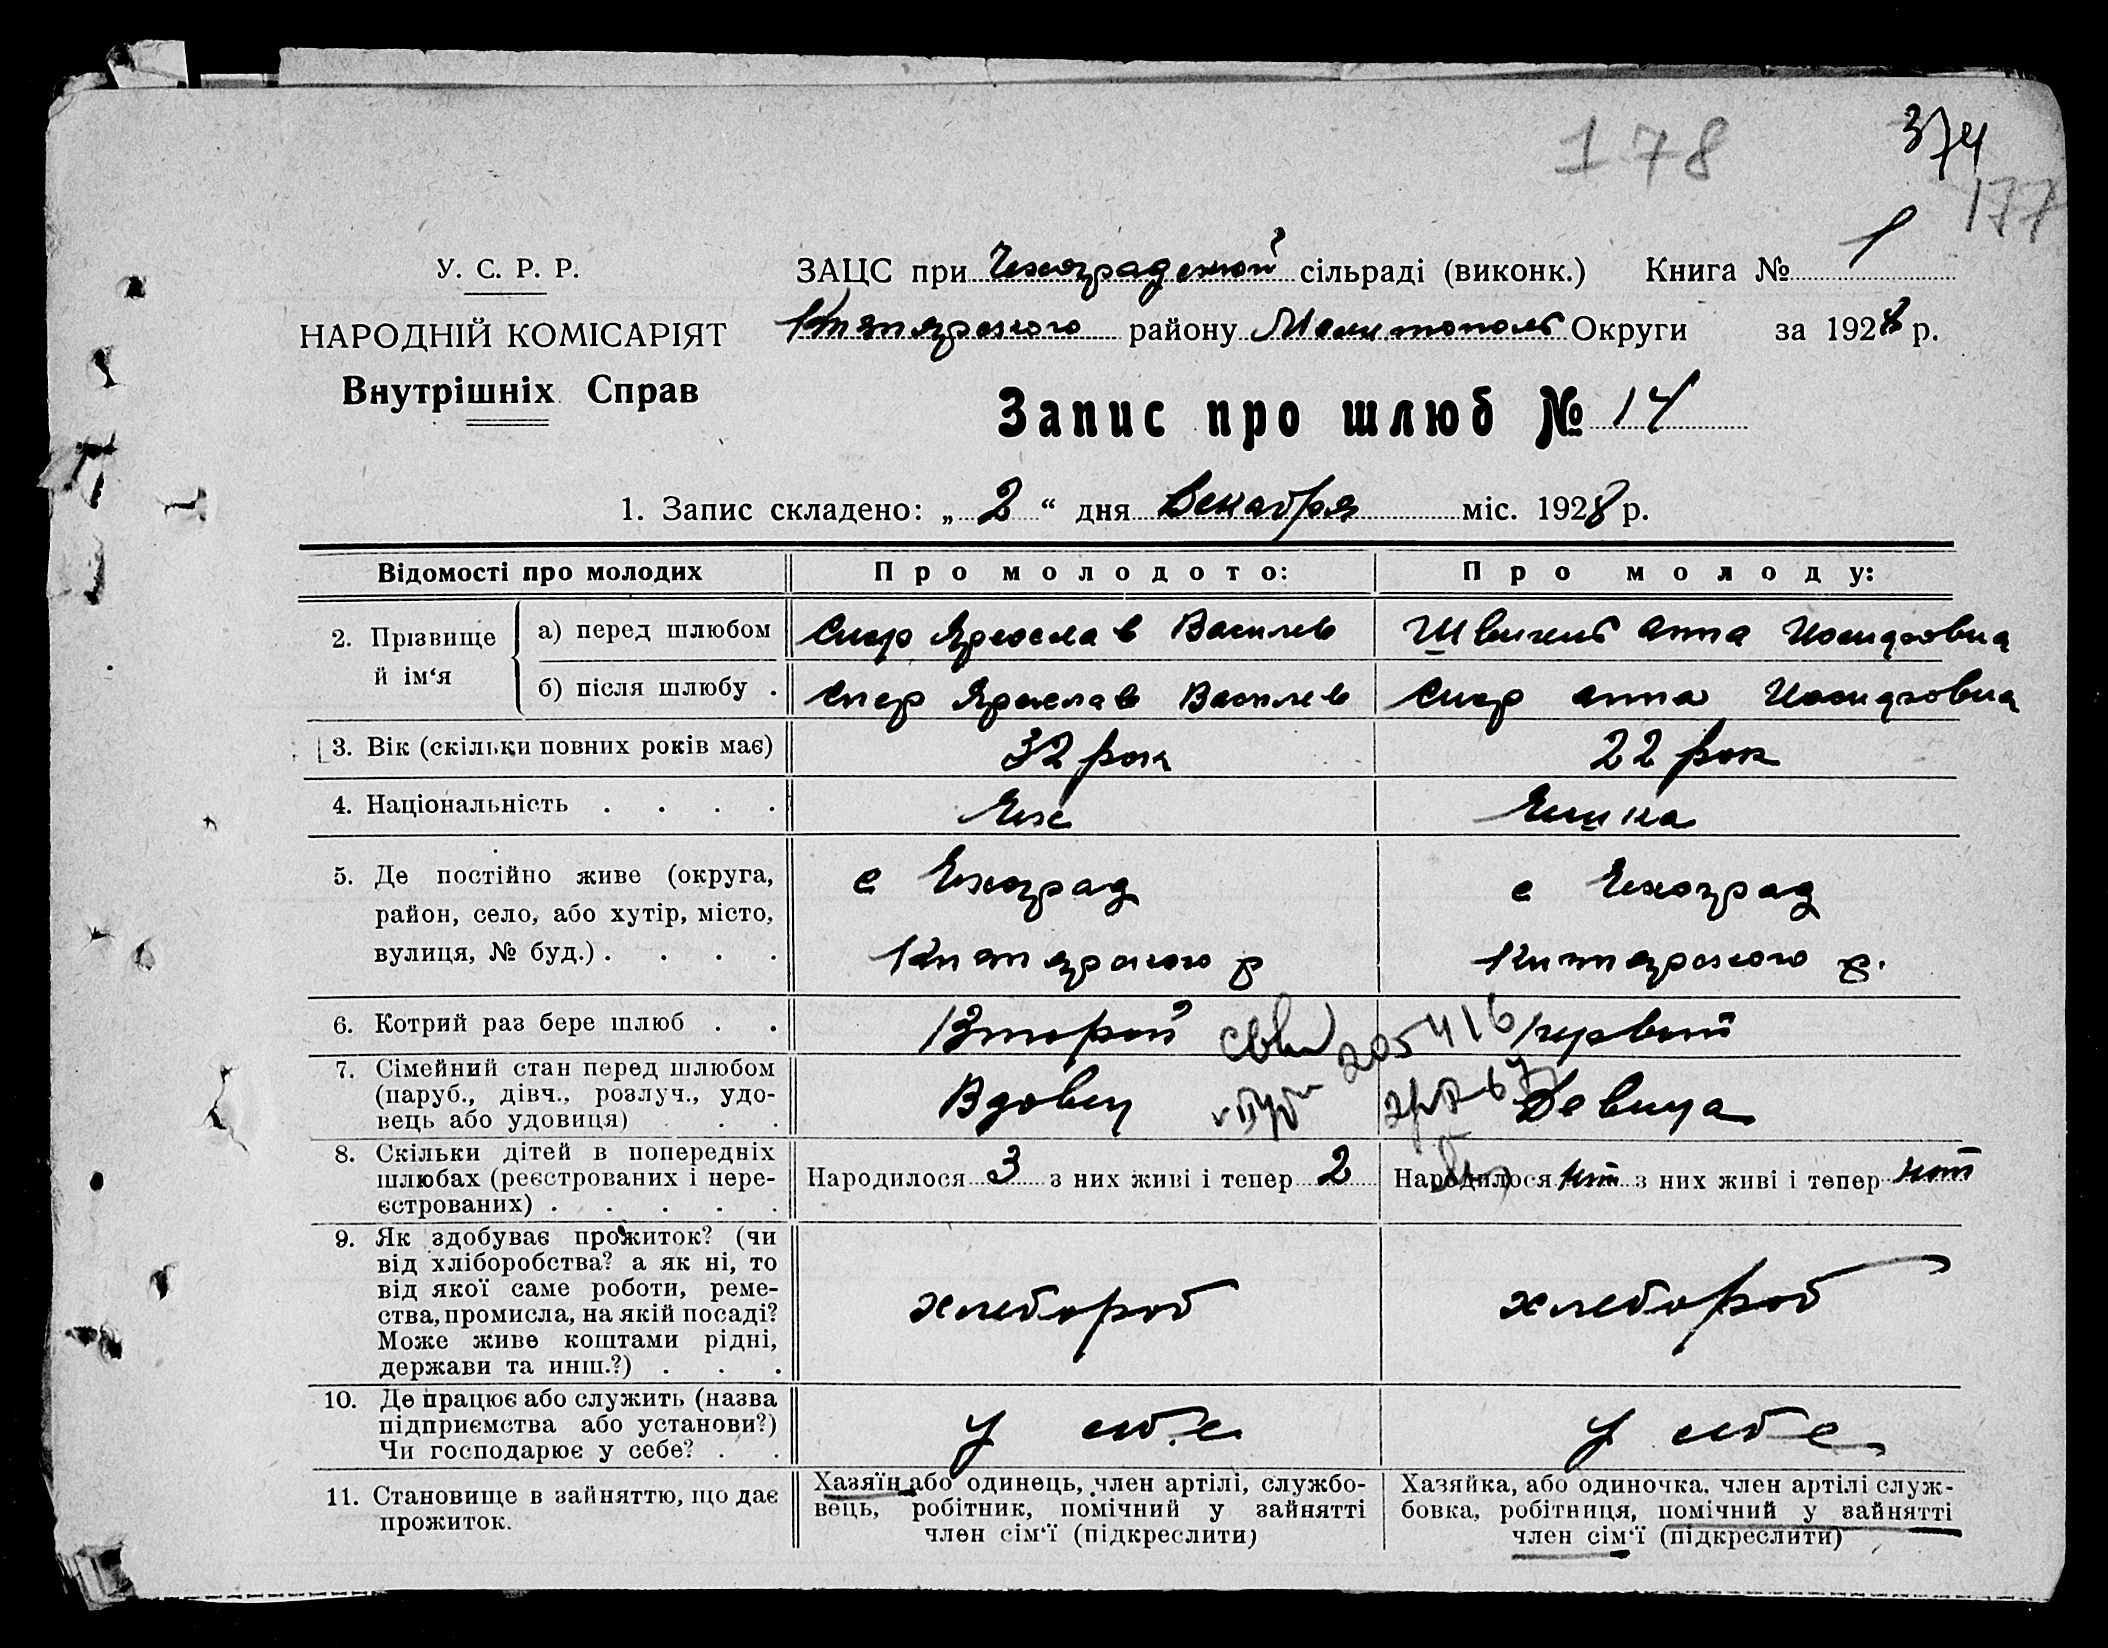 178
374
177
У. С. Р. Р.
НАРОДНІЙ КОМІСАРІЯТ
Внутрішніх Справ
ЗАЦС при Чехоградской сільраді (виконк.) Книга № 1
района Мелитополь Округи за 1928 р.
Запис про шлюб № 14
1. Запис складено: „ 2 “ дня Декабря міс. 1928 р.
Відомості про молодих
Про молодого:
Про молоду:
2. Прізвище й ім‘я
а) перед шлюбом
Ярослав Василев
Анна
б) після шлюбу .
Ярослав Василев
Анна
3. Вік (скільки повних років має)
32 рок
22 рок
4. Національність . . . .
Чех
Чешка
5. Де постійно живе (округа, район, село, або хутір, місто, вулиця, № буд.) . . . .
с Чехоград
р
с Чехоград
р.
6. Котрий раз бере шлюб . .
Второй
первый
205416
7. Сімейний стан перед шлюбом (паруб., дівч., розлуч., удовець або удовиця) . . .
Вдовец
Девица
8. Скільки дітей в попередніх шлюбах (реєстрованих і нереєстрованих) . . . . .
Народилося 3 з них живі і тепер 2
Народилося нет з них живі і тепер нет
9. Як здобуває прожиток? (чи від хліборобства? а як ні, то від якої саме роботи, ремества, промисла, на якій посаді? Може живе коштами рідні, держави та инш.?) . . .
хлебороб
хлебороб
10. Де працює або служить (назва підприємства або установи?) Чи господарює у себе? . .
у себе
у себе
11. Становище в зайняттю, що дає прожиток.
Хазяїн або одинець, член артілі, службовець, робітник, помічний у зайнятті член сім‘ї (підкреслити)
Хазяйка, або одиночка. член артілі службовка, робітниця, помічний у зайнятті член сім‘ї (підкреслити)